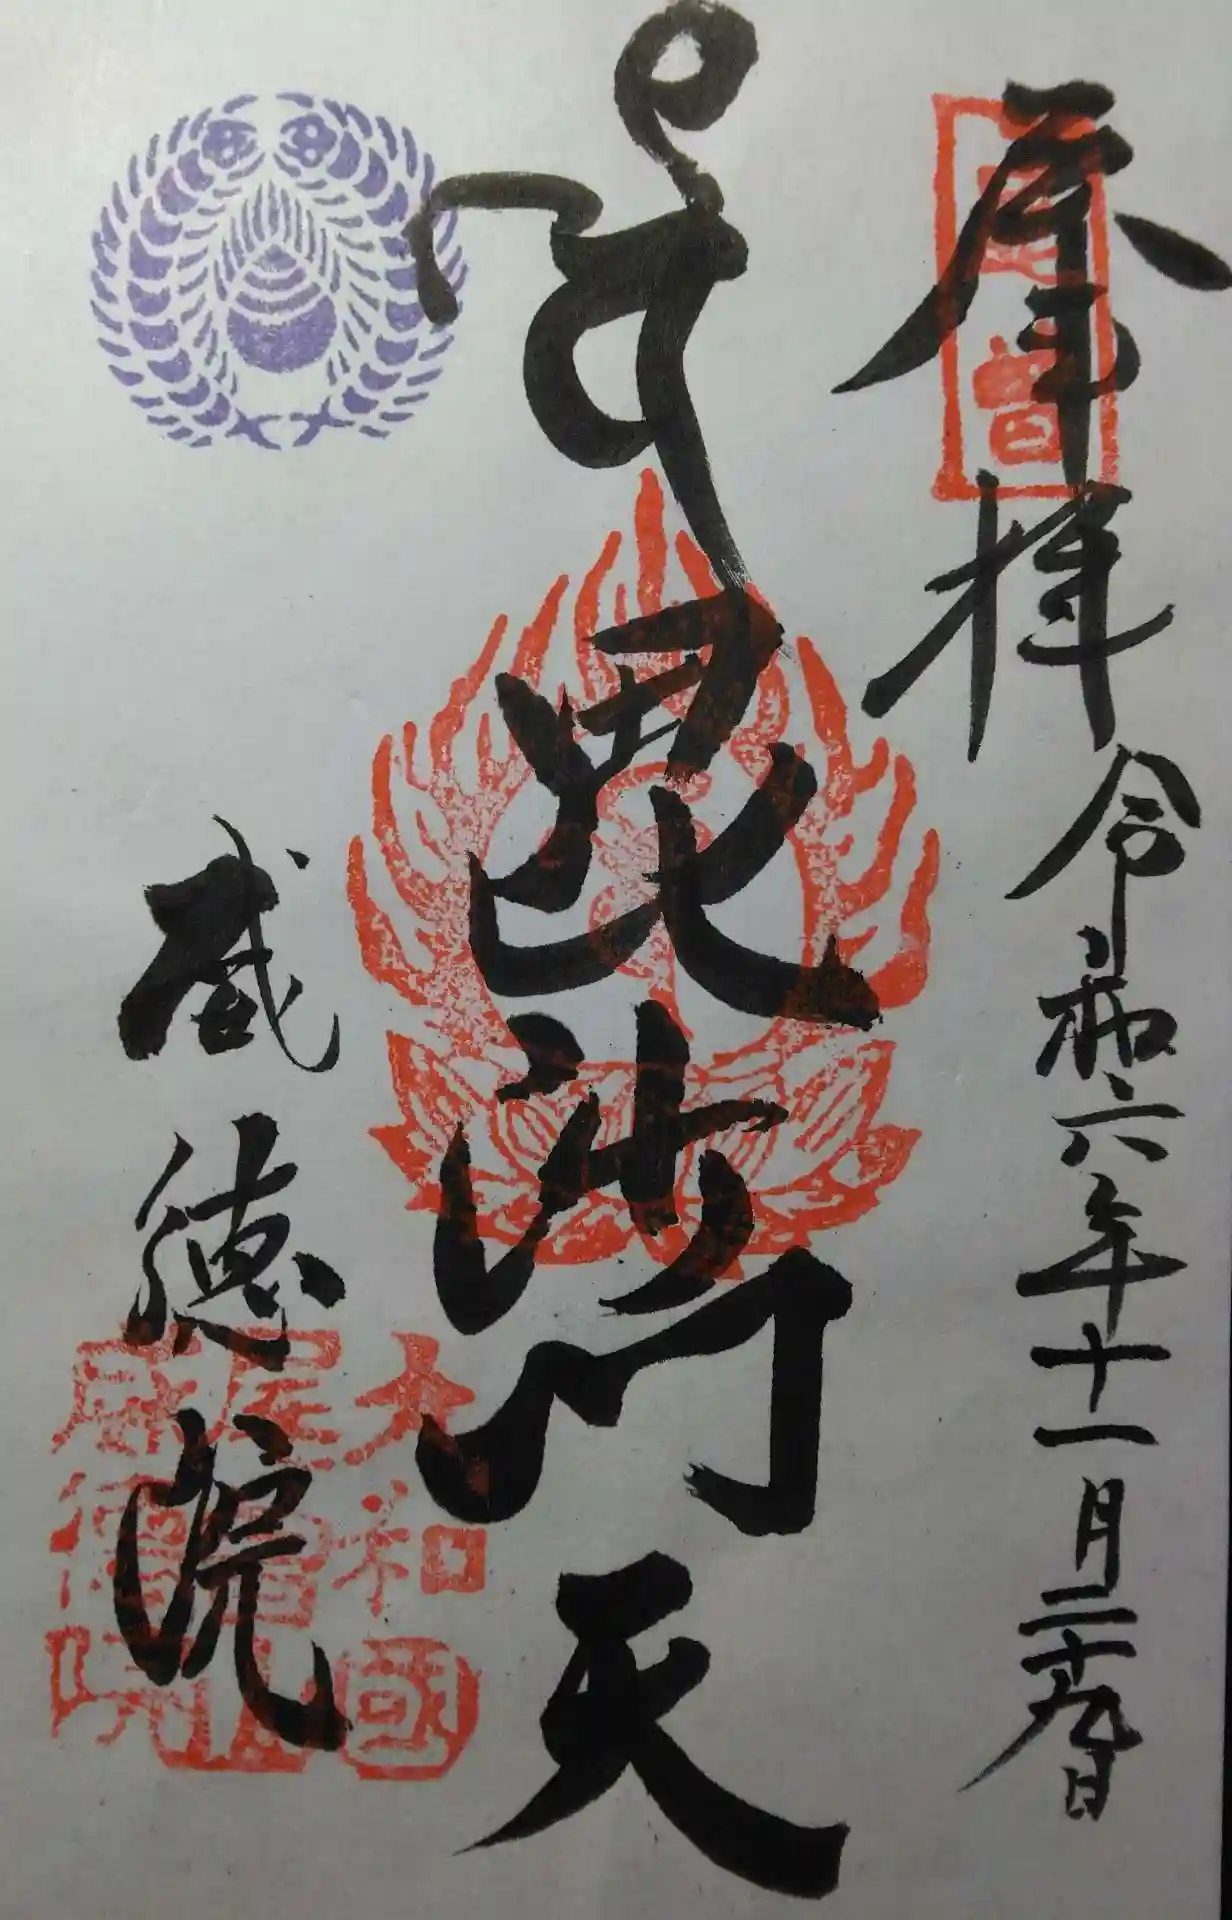 奉拝 令和六年十一月二十九日
毘沙門天
威徳院
大和國